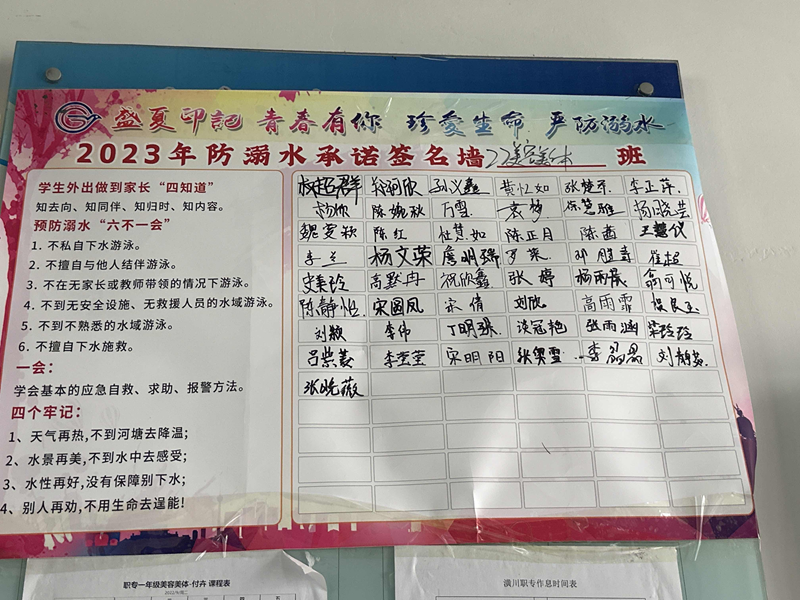 盛夏印記 青春有你 珍爱生命 严防溺水
2023年防溺水承诺签名墙22美容美体班
学生外出做到家长“四知道”
知去向、知同伴、知归时、知内容。
预防溺水“六不一会”
1. 不私自下水游泳。
2. 不擅自与他人结伴游泳。
3. 不在无家长或教师带领的情况下游泳。
4. 不到无安全设施、无救援人员的水域游泳。
5. 不到不熟悉的水域游泳。
6. 不擅自下水施救。
一会：
学会基本的应急自救、求助、报警方法。
四个牢记：
1、天气再热,不到河塘去降温;
2、水景再美,不到水中去感受;
3、水性再好,没有保障别下水;
4、别人再劝,不用生命去逞能!
孙义鑫 黄忆如 张楚平 李正萍
陈婉秋 万雪 袁梦 杨晓芸
魏雯颖 陈红 杜慧如 陈正月 陈茜 王慧仪
李兰 杨文荣 詹明瑞 罗莱 邓胜寿 崔超
史美玲 高默冉 祝欣鑫 张婷 杨雨晨 翁可悦
陈静怡 宋圆凤 宋倩 刘欣 高雨霏 侯良玉
刘颖 李伟 丁明珠 谈冠艳 张雨涵 梁玲玲
吕紫菱 李莹莹 宋明阳 张奥雪 李晶晶
张晓薇
职专一年级美容美体-付卉 课程表
潢川职专作息时间表